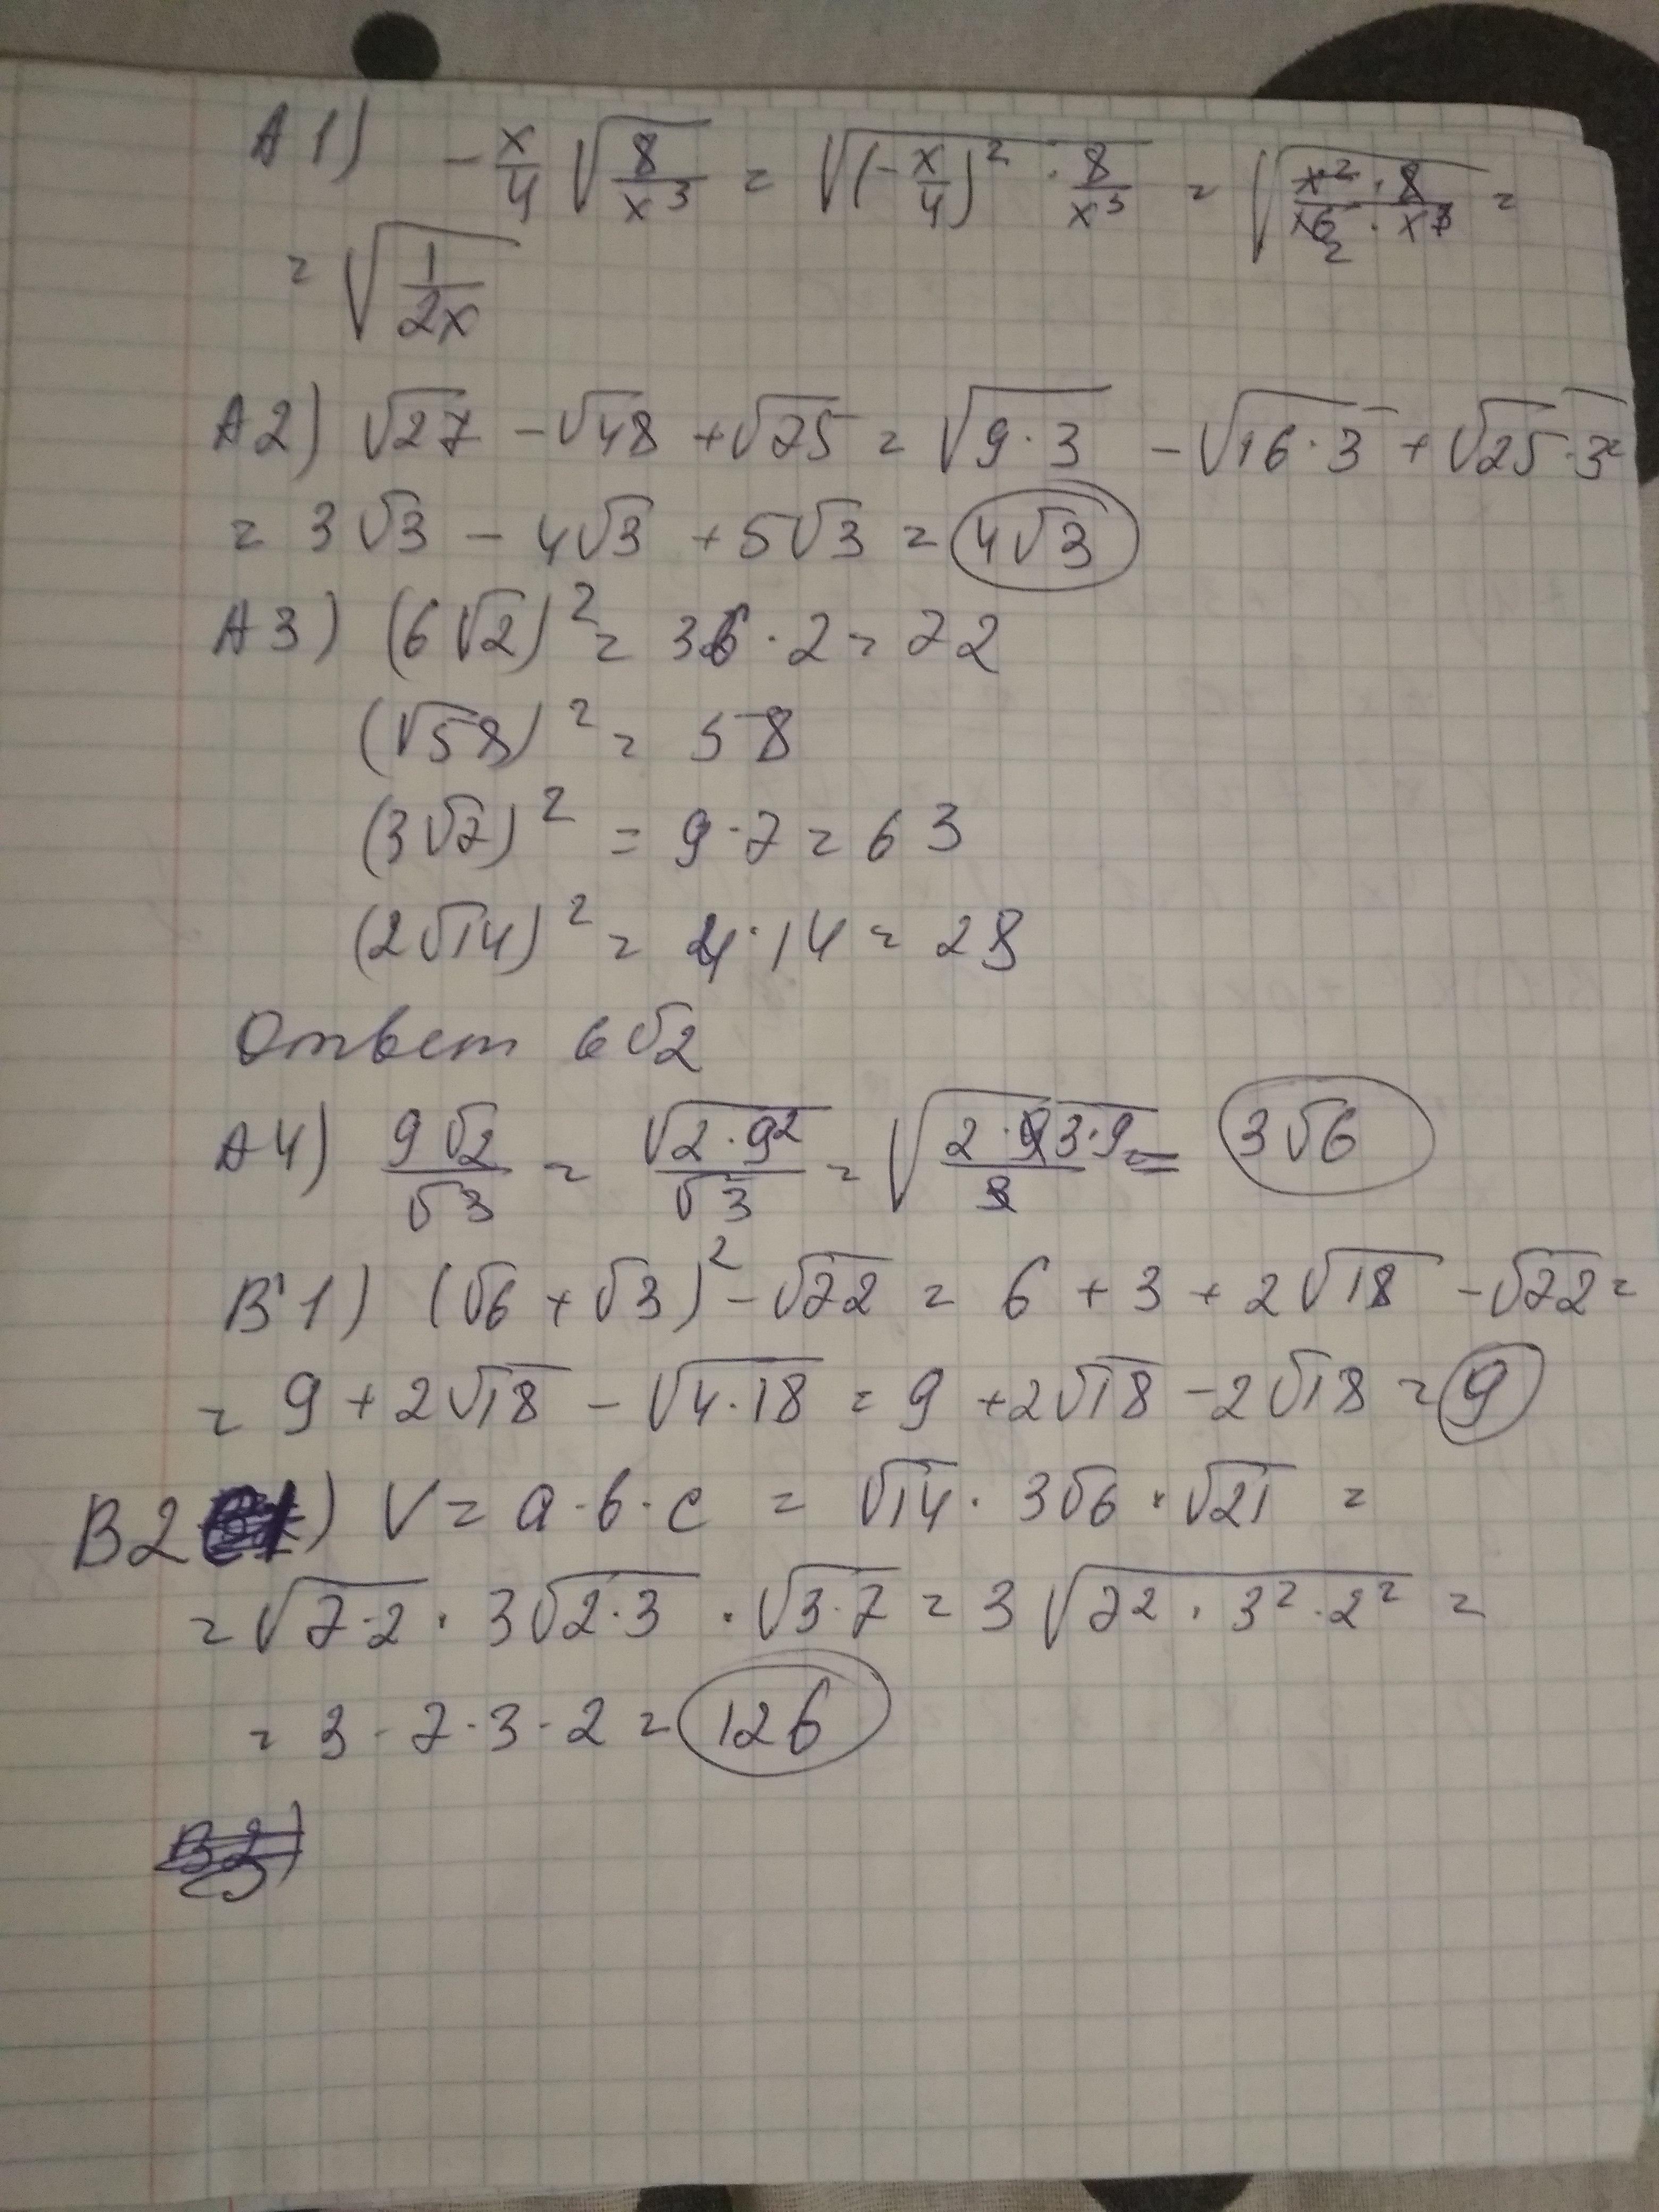 А1) -x/4 √(8/x³) = √((-x/4)² · 8/x³) = √(x² · 8 / 16 · x³) =
= √(1/2x)
А2) √27 - √48 + √75 = √9·3 - √16·3 + √25·3 =
= 3√3 - 4√3 + 5√3 = 4√3
А3) (6√2)² = 36 · 2 = 72
(√58)² = 58
(3√7)² = 9·7 = 63
(2√14)² = 4·14 = 28
Ответ 6√2
А4) 9√2/√3 = √2·9²/√3 = √(2·9·3·9/3) = 3√6
В1) (√6 + √3)² - √72 = 6 + 3 + 2√18 - √72 =
= 9 + 2√18 - √4·18 = 9 + 2√18 - 2√18 = 9
В2) V = a·b·c = √14 · 3√6 · √21 =
= √7·2 · 3√2·3 · √3·7 = 3√7²·3²·2² =
= 3·7·3·2 = 126